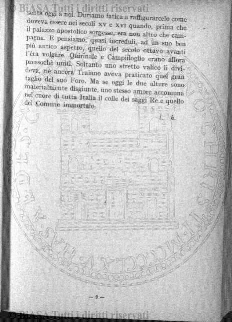 © BIASA Tutti i diritti riservati
tanta oggi a noi. Duriamo fatica a raffigurarcelo come
doveva essere nei secoli XV e XVI quando, prima che
il palazzo apostolico sorgesse, era non altro che cam-
pagna. E pensiamo, quasi increduli, ad un suo ben
più antico aspetto, quello del secolo ottavo avanti
l'èra volgare. Quirinale e Campidoglio erano allora
pressochè uniti. Soltanto uno stretto valico li divi-
deva, nè ancora Traiano aveva praticato quel gran
taglio del suo Foro. Ma se oggi le due alture sono
materialmente disgiunte, uno stesso amore accomuna
nel cuore di tutta Italia il colle dei saggi Re e quello
del Comune immortale.
— 9 —
© BIASA Tutti i diritti riservati